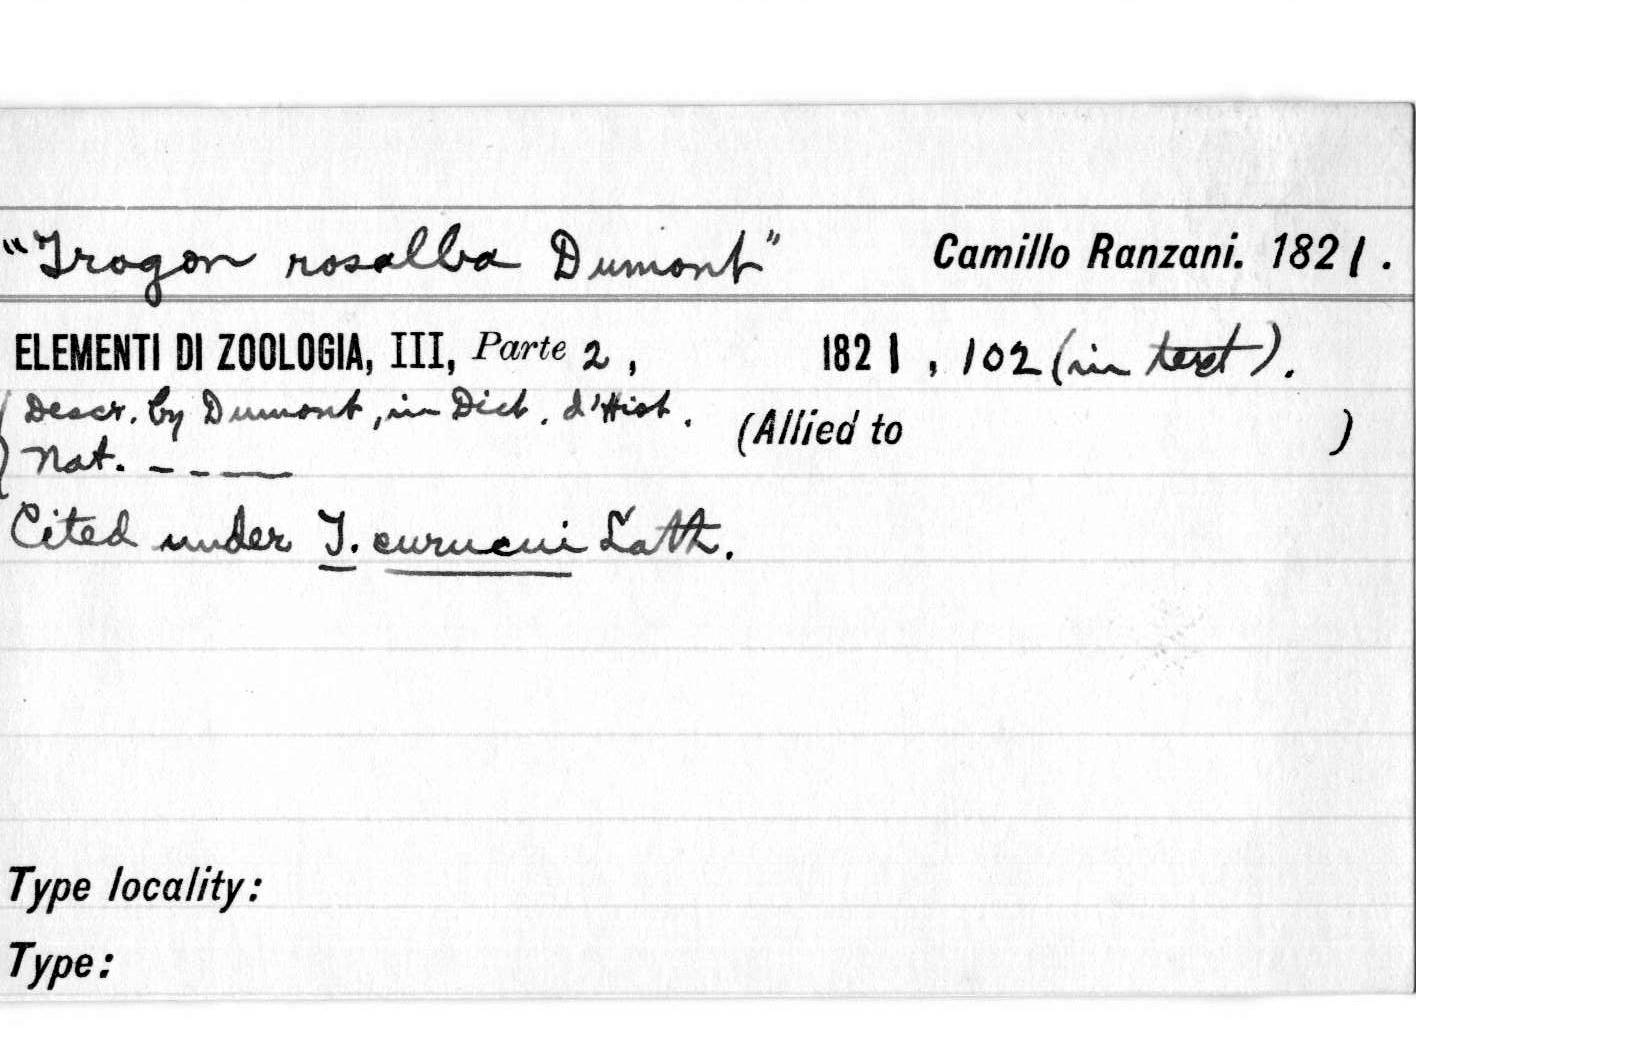 "Trogon rosalba Dumont" Camillo Ranzani. 1821.
ELEMENTI DI ZOOLOGIA, III, Parte 2, 1821, 102 (in text).
(Descr. by Dumont, in Dict. d'Hist. (Allied to )
Nat. - - —
Cited under T. curucui Lath.
Type locality:
Type: